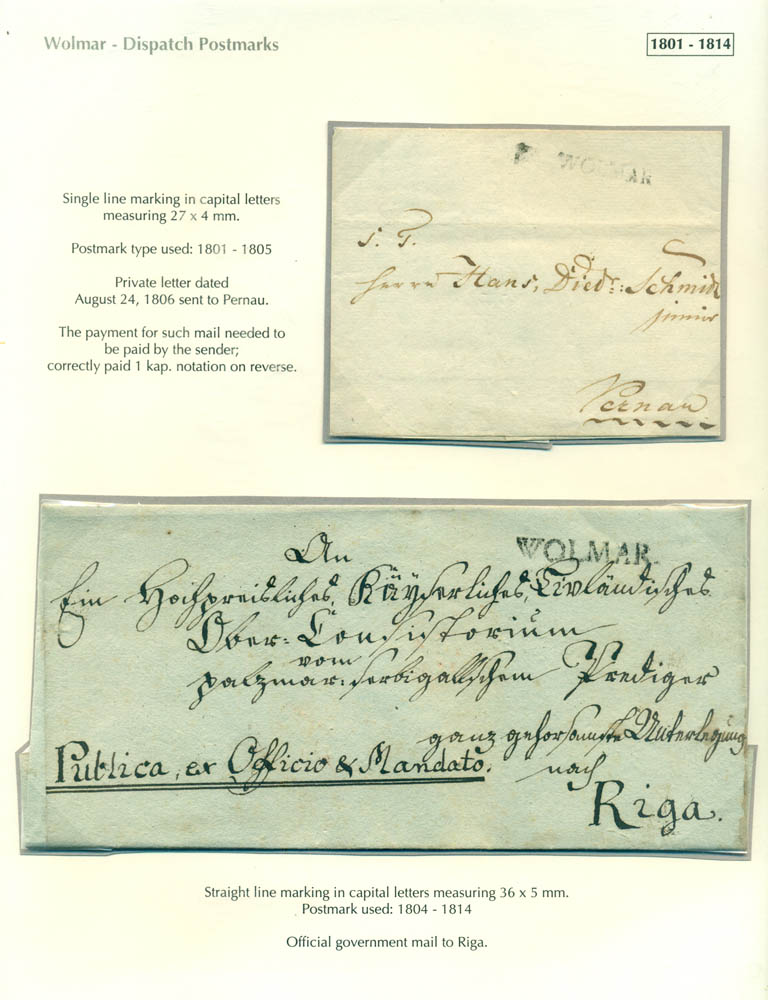 Wolmar - Dispatch Postmarks
1801 - 1814
Single line marking in capital letters
measuring 27 x 4 mm.
Postmark type used: 1801 - 1805
Private letter dated
August 24, 1806 sent to Pernau.
The payment for such mail needed to
be paid by the sender;
correctly paid 1 kap. notation on reverse.
WOLMAR
S. T.
Herrn Hans, Died: Schmidt
junior
Pernau
WOLMAR.
An
Ein Hochpreisliches, Kayserliches, Livländisches
Ober-Consistorium
vom
palzmar: serbigallschem Prediger
ganz gehorsamste Unterlegung
Publica, ex Officio & Mandato.
nach
Riga.
Straight line marking in capital letters measuring 36 x 5 mm.
Postmark used: 1804 - 1814
Official government mail to Riga.